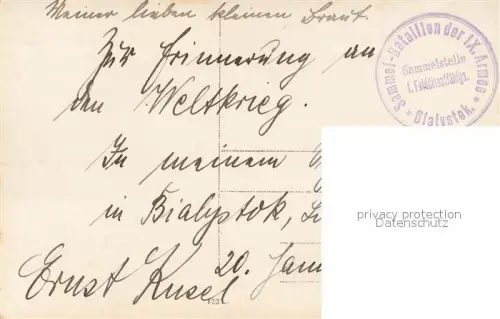 Meiner lieben kleinen Braut.
Zur Erinnerung an
den Weltkrieg.
In meinem
in Bialystok,
20. Janu
Ernst Kusel
Sammel-Batallion der IX. Armee
Sammelstelle
f. Felddienstfähige.
* Bialystok. *
privacy protection
Datenschutz